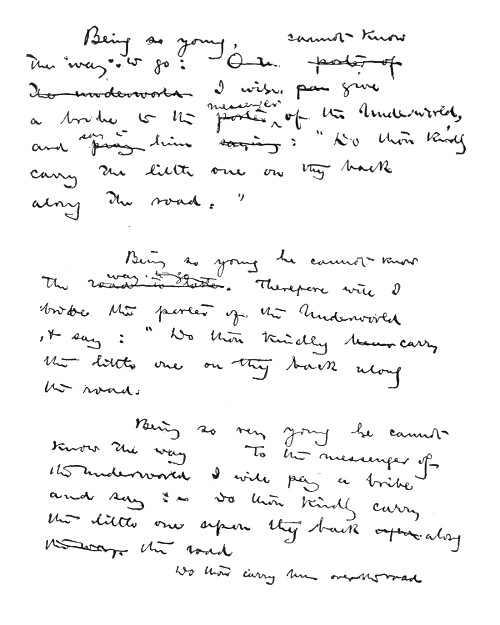 Being so young, cannot know
The way to go: O ~~porter of~~
~~The underworld~~ I wise. ~~pan~~ give
a bribe to the ~~porter~~ messenger of the Underworld,
and ~~pray~~ say to him ~~saying~~ : "Do thou kindly
carry the little one on thy back
along the road."
Being so young he cannot know
The ~~road to take~~ way to go. Therefore will I
bribe the porter of the Underworld
, & say : "Do thou kindly carry
the little one on thy back along
the road.
Being so very young he cannot
know the way To the messenger of
the underworld I will pay a bribe
and say : – Do thou kindly carry
the little one upon thy back along
~~the way~~ the road
Do thou carry him over the road